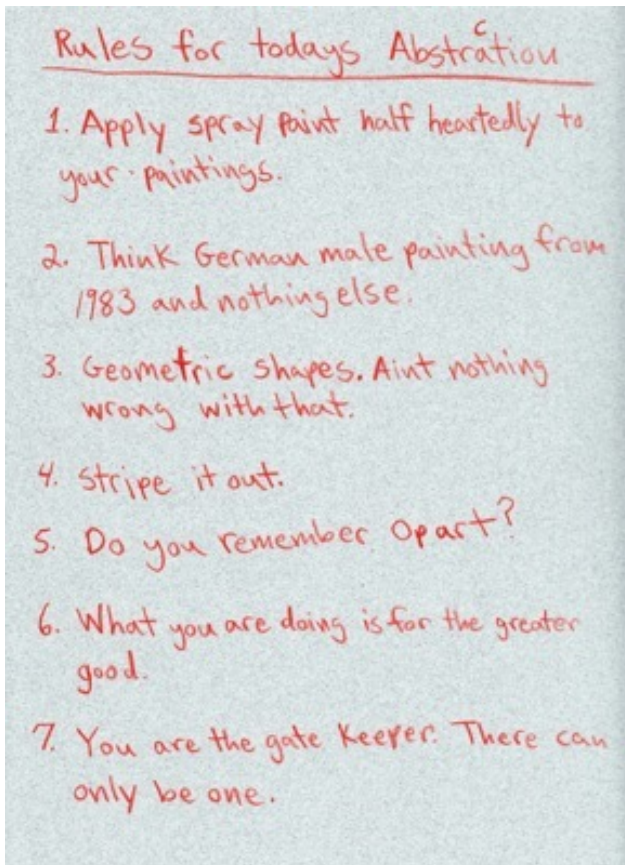 Rules for todays Abstraction
1. Apply spray paint half heartedly to
your paintings.
2. Think German male painting from
1983 and nothing else.
3. Geometric shapes. Aint nothing
wrong with that.
4. Stripe it out.
5. Do you remember Opart?
6. What you are doing is for the greater
good.
7. You are the gate keeper. There can
only be one.